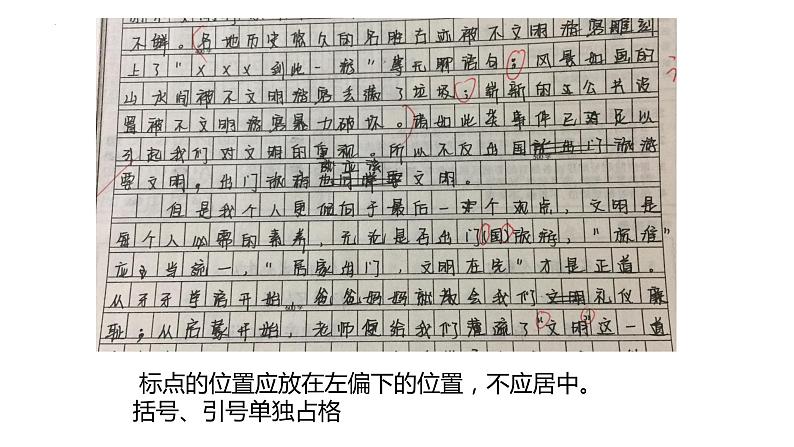 不鲜。各地历史悠久的名胜古迹被不文明游客雕刻
上了“XXX到此一游”等无聊语句；风景如画的
山水间被不文明游客丢满了垃圾；崭新的公共设
置被不文明游客暴力破坏。诸如此类事件已足以
引起我们对文明的重视。所以不仅出国
就应该
要文明，出门旅游要文明。
但是我个人更倾向于最后一个观点，文明是
每个人必需的素养，无论是否出门(国)旅游，“旅准”
应当统一，“居家出门，文明在先”才是正道。
从牙牙学语开始，爸爸妈妈就教会我们礼仪廉
耻；从启蒙开始，老师便给我们灌流了“文明”这一道
标点的位置应放在左偏下的位置，不应居中。
括号、引号单独占格